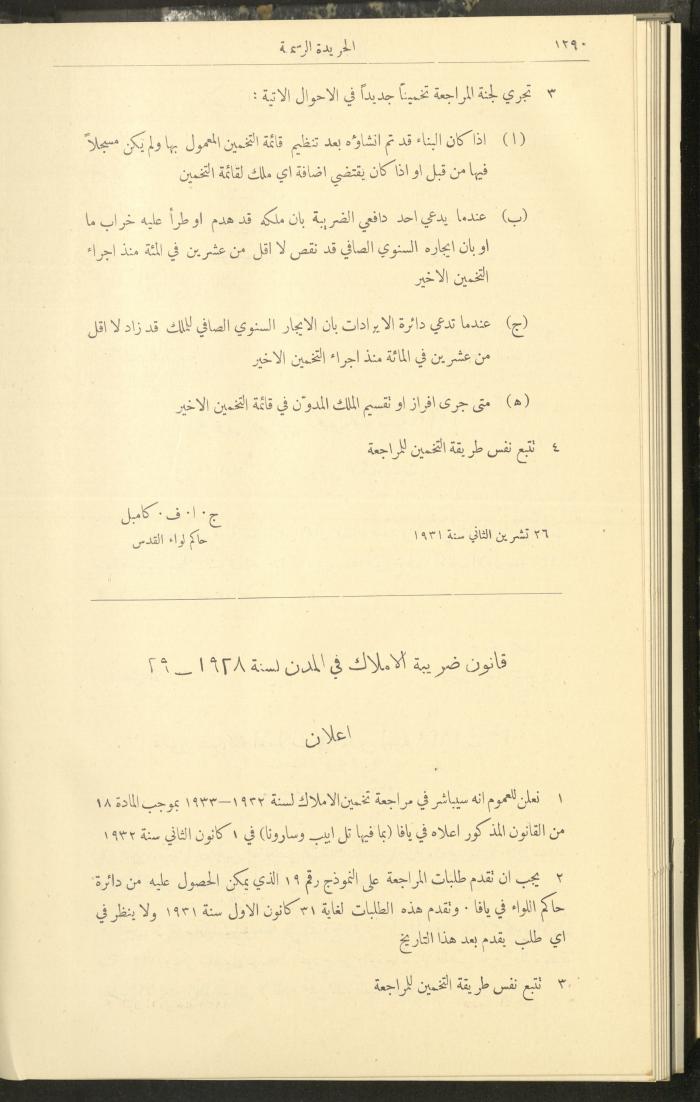 ١٢٩٠
الجريدة الرسمية
٣ تجري لجنة المراجعة تخميناً جديداً في الاحوال الاتية :
(ا) اذا كان البناء قد تم انشاؤه بعد تنظيم قائمة التخمين المعمول بها ولم يكن مسجلاً
فيها من قبل او اذا كان يقتضي اضافة اي ملك لقائمة التخمين
(ب) عندما يدعي احد دافعي الضريبة بان ملكه قد هدم او طرأ عليه خراب ما
او بان ايجاره السنوي الصافي قد نقص لا اقل من عشرين في المئة منذ اجراء
التخمين الاخير
(ج) عندما تدعي دائرة الايرادات بان الايجار السنوي الصافي للملك قد زاد لا اقل
من عشرين في المائة منذ اجراء التخمين الاخير
(ه) متى جرى افراز او تقسيم الملك المدوّن في قائمة التخمين الاخير
٤ تتبع نفس طريقة التخمين للمراجعة
ج٠ ا٠ ف٠ كامبل
٢٦ تشرين الثاني سنة ١٩٣١
حاكم لواء القدس
قانون ضريبة الاملاك في المدن لسنة ١٩٢٨ – ٢٩
اعلان
١ نعلن للعموم انه سيباشر في مراجعة تخمين الاملاك لسنة ١٩٣٢–١٩٣٣ بموجب المادة ١٨
من القانون المذكور اعلاه في يافا (بما فيها تل ابيب وسارونا) في ١ كانون الثاني سنة ١٩٣٢
٢ يجب ان تقدم طلبات المراجعة على النموذج رقم ١٩ الذي يمكن الحصول عليه من دائرة
حاكم اللواء في يافا ٠ وتقدم هذه الطلبات لغاية ٣١ كانون الاول سنة ١٩٣١ ولا ينظر في
اي طلب يقدم بعد هذا التاريخ
٣ تتبع نفس طريقة التخمين للمراجعة